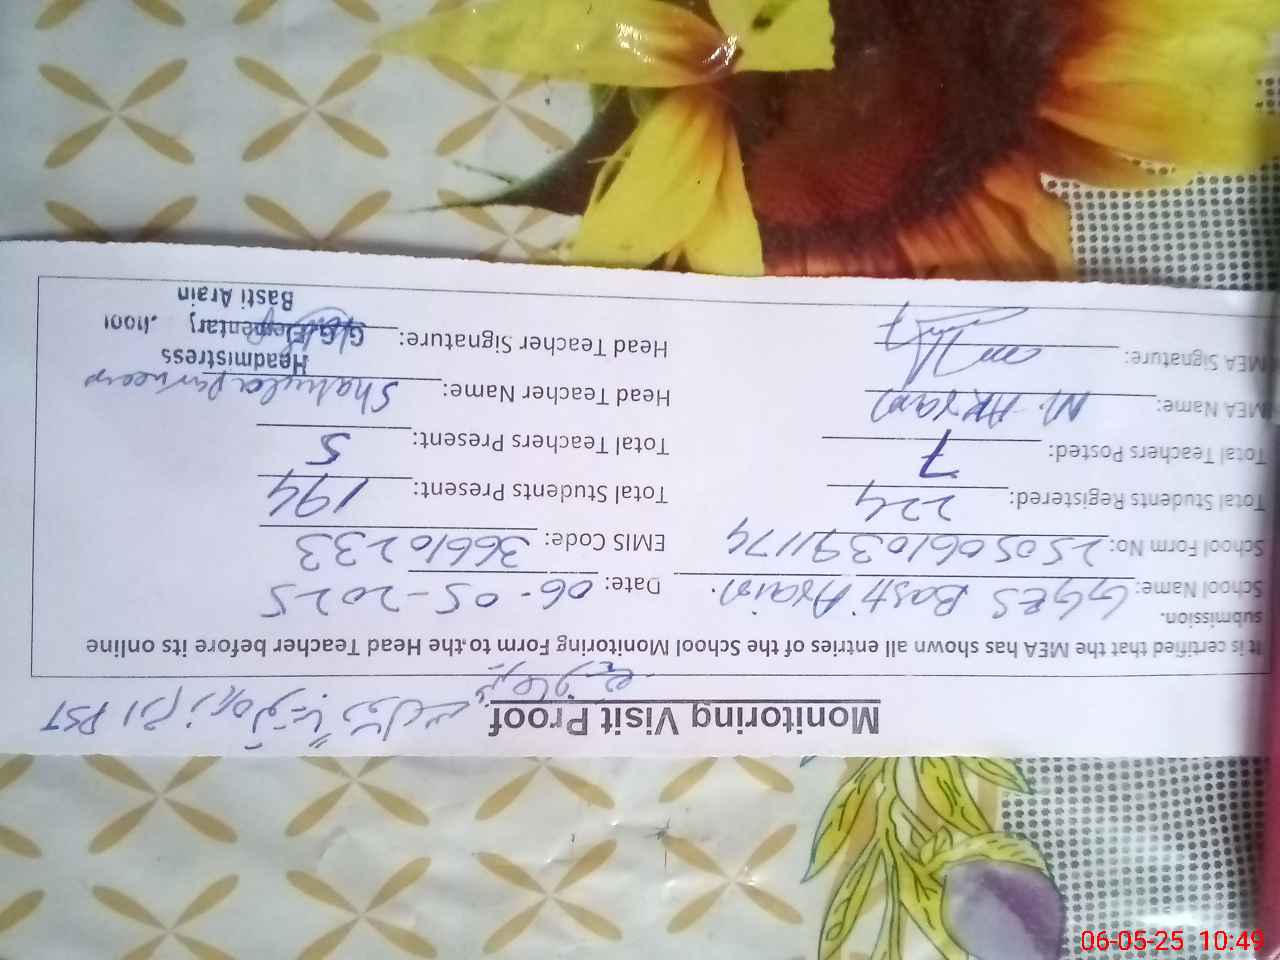 Monitoring Visit Proof
PST
It is certified that the MEA has shown all entries of the School Monitoring Form to the Head Teacher before its online
submission.
School Name: GGES Basti Arain. Date: 06-05-2025
School Form No: 25050610391174 EMIS Code: 36610233
Total Students Registered: 224 Total Students Present: 194
Total Teachers Posted: 7 Total Teachers Present: 5
MEA Name: M. Akram Head Teacher Name: Shakeela Parveen
MEA Signature: Head Teacher Signature:
Headmistress
Elementary
Basti Arain
06-05-25 10:49